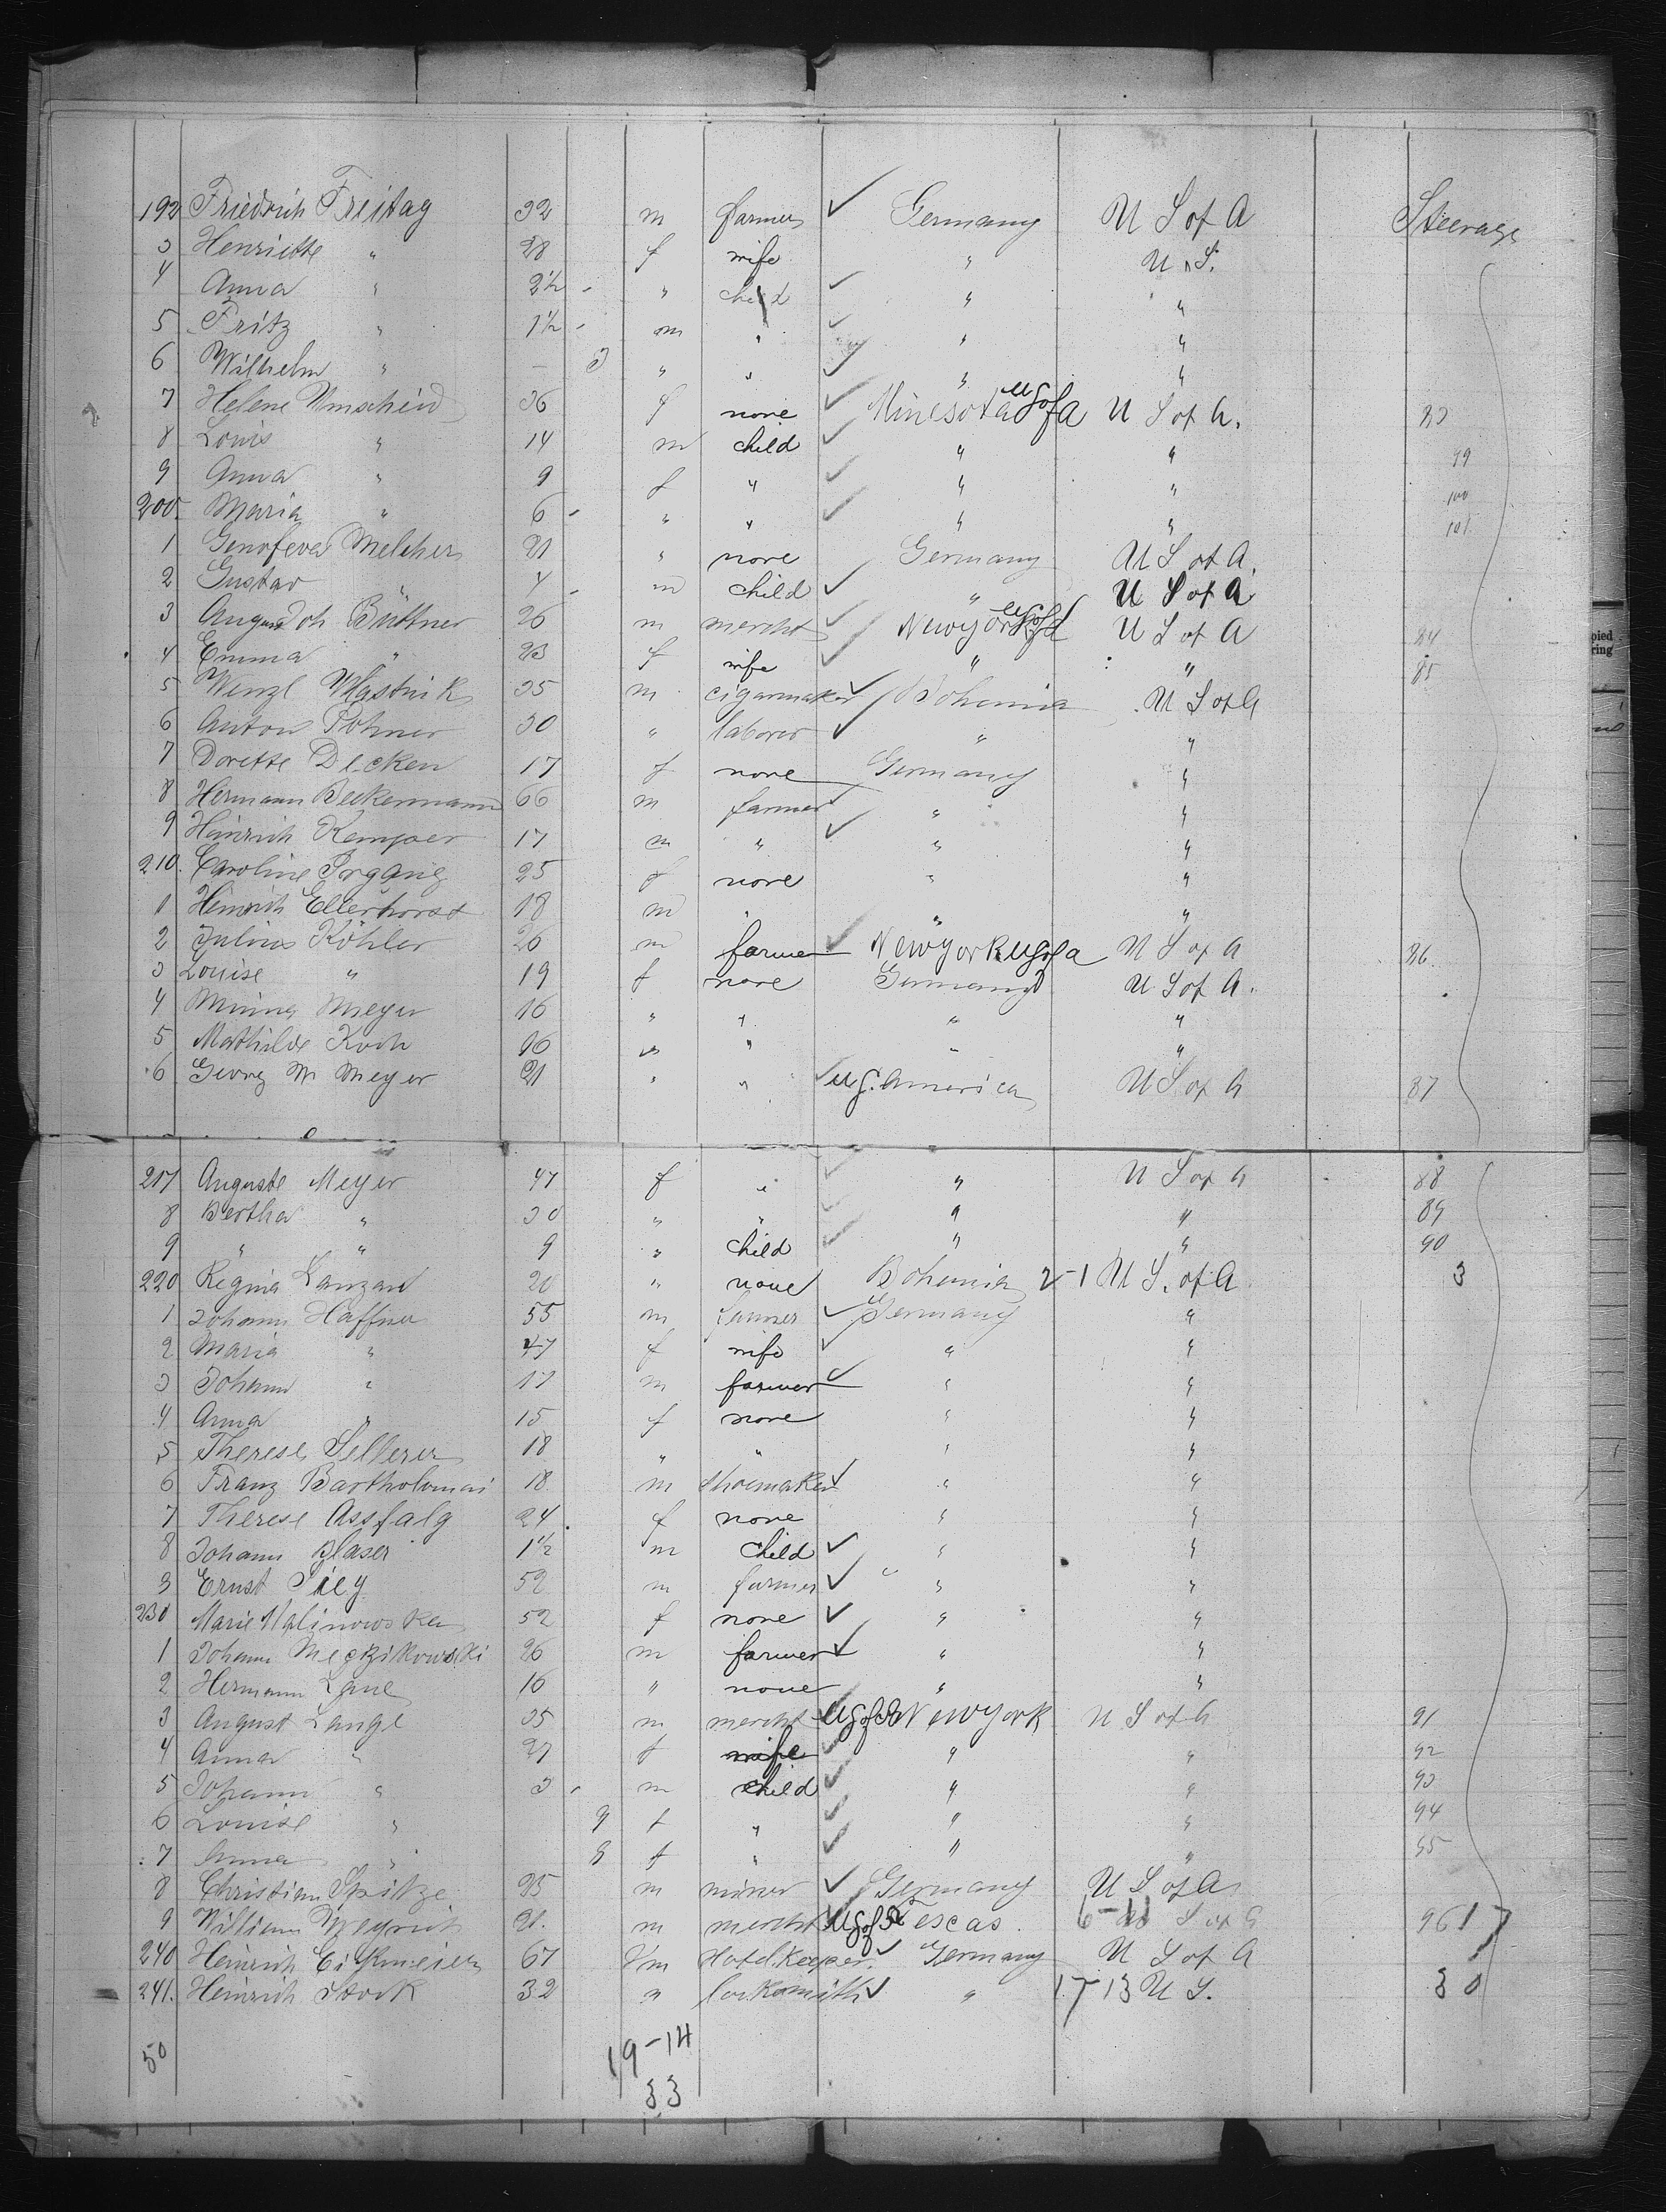 192 Friedrich Freitag 32 m farmer ✓ Germany U S of A Steerage
3 Henriette " 28 f wife " U.S.
4 Anna " 2½ - " child ✓ " "
5 Fritz " 1½ - m " ✓ " "
6 Wilhelm " - 3 " " ✓ " "
7 Helene Umscheid 36 f none ✓ Minesota US of A U S of A. 83
8 Louis " 14 m child ✓ " " 99
9 Anna " 9 f " ✓ " " 100
200. Maria " 6 - " " ✓ " " 101
1 Genofeva Melcher 21 " none Germany U S of A.
2 Gustav " 4 - m child ✓ " U S of A
3 August Joh Büttner 26 m mercht ✓ Newyork US of A U S of A 84
4 Emma " 23 f wife ✓ " " 85
5 Wenzl Wlastnik 35 m cigarmaker ✓ Bohemia U S of A
6 Anton 30 " laborer ✓ " "
7 Dorette Decken 17 f none Germany "
8 Hermann Beckermann 66 m farmer ✓ " "
9 Heinrich Kemper 17 m " ✓ " "
210. Caroline Irgang 25 f none " "
1 Heinrich Ellerhorst 18 m " " "
2 Julius Köhler 26 m farmer ✓ Newyork US of A U S of A 86
3 Louise " 19 f none Germany U S of A.
4 Minna Meyer 16 " " " "
5 Mathilde Koch 16 " " " "
6 Georg W Meyer 21 " " ✓ US. America U S of A 87
217 Auguste Meyer 47 f " ✓ " U S of A 88
8 Bertha " 30 " " ✓ " " 89
9 " " 9 " child ✓ " " 90
220 Regina Lanzan 20 " none Bohemia 2-1 U S. of A 3
1 Johann Haffner 55 m farmer ✓ Germany "
2 Maria " 47 f wife ✓ " "
3 Johann " 17 m farmer ✓ " "
4 Anna " 15 f none " "
5 Therese Sellerer 18 " " " "
6 Franz Bartholomäi 18 m shoemaker ✓ " "
7 Therese Assfalg 24 f none " "
8 Johann Blaser 1½ m child ✓ " "
9 Ernst Sieg 52 m farmer ✓ " "
230 Marie Malinowska 52 f none ✓ " "
1 Johann 26 m farmer ✓ " "
2 Hermann Lane 16 " none " "
3 August Lange 35 m mercht US of A Newyork U S of A 91
4 Anna " 27 f wife ✓ " " 92
5 Johann " 3 - m child ✓ " " 93
6 Louise " 9 f " ✓ " " 94
7 Anna " 9 f " ✓ " " 95
8 Christian Spitze 25 m miner ✓ Germany U S of A
9 William Weyrich 21. m mercht US of A Tescas 6-11 U S of A 96 17
240 Heinrich Eickmeier 67 m Hotelkeeper ✓ Germany U S of A
241. Heinrich Stock 32 " locksmith ✓ " 17 13 U S. 30
50 19-14
33